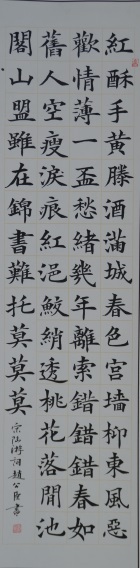 紅酥手黃滕酒滿城春色宮墻柳東風惡
歡情薄一盃愁緒幾年離索錯錯錯春如
舊人空瘦淚痕紅浥鮫綃透桃花落閒池
閣山盟雖在錦書難托莫莫莫
宋陸游詞趙公書